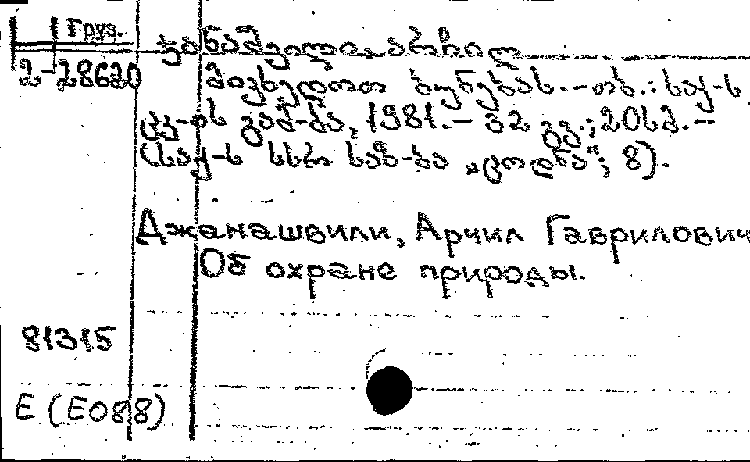 Груз.
ჯანაშვილი, არჩილ
2-28620 მივხედოთ ბუნებას. — თბ.: საქ-ს
ცკ-ის გამ-ბა, 1981. — 32 გვ.; 20სმ. —
(საქ-ს სსრ საზ-ბა „ცოდნა“; 8).
Джанашвили, Арчил Гаврилович
Об охране природы.
81315
Е (Е088)